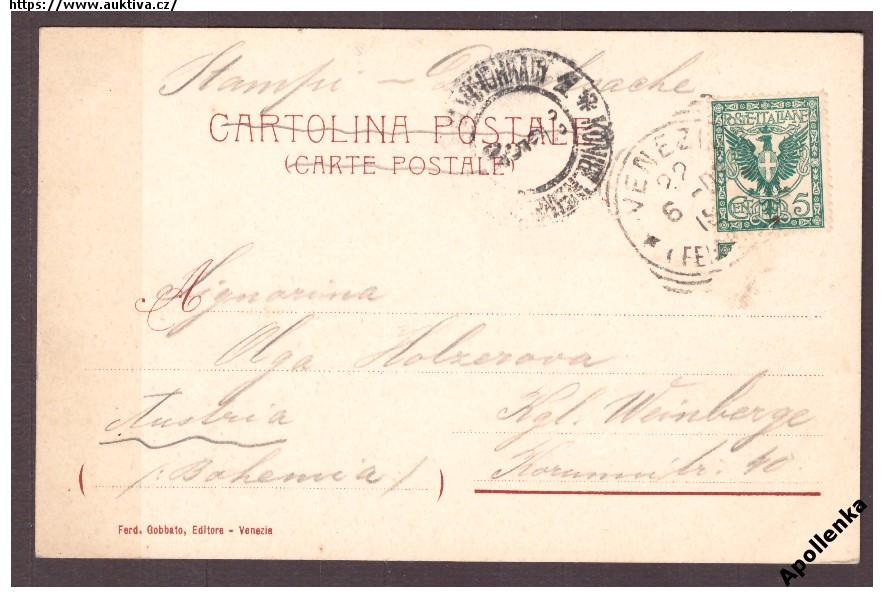 https://www.auktiva.cz/
Stampi – Drucksache
CARTOLINA POSTALE
(CARTE POSTALE)
VENEZI
6
(FER
POSTE·ITALIANE
CENT 5
A Signorina
Olga Holzerova
Austria
Kgl. Weinberge
(Bohemia)
40
Ferd. Gobbato, Editore - Venezia
Apollenka